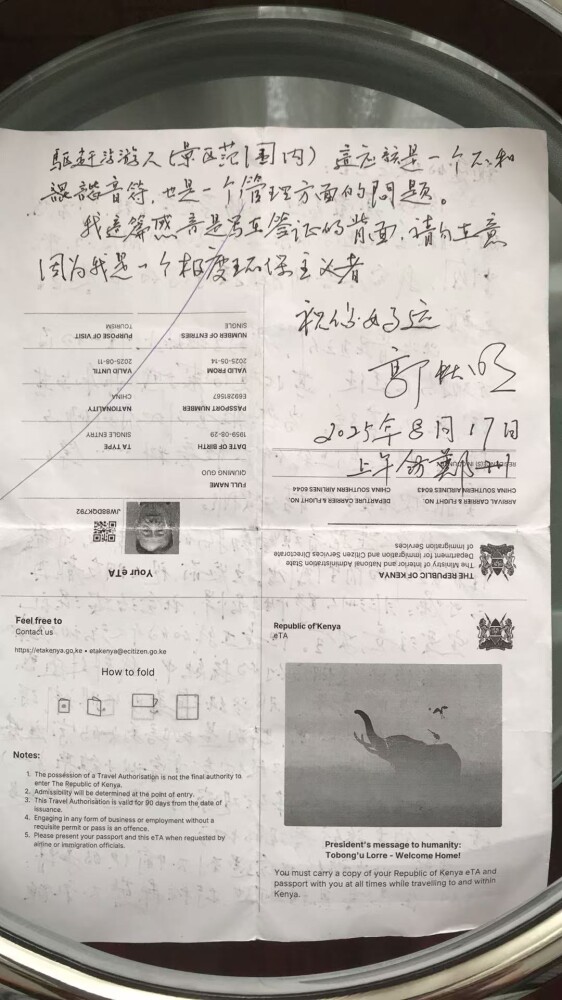 驅赶游人（景区范围内）這应該是一个不和
諧音符，也是一个管理方面的问题。
我這篇感言是写在签证的背面，請勿在意
因为我是一个极度环保主义者
祝你好运
2025年8月17日
上午
PURPOSE OF VISIT
TOURISM
NUMBER OF ENTRIES
SINGLE
VALID UNTIL
2025-08-11
VALID FROM
2025-05-14
NATIONALITY
CHINA
PASSPORT NUMBER
E69281567
TA TYPE
SINGLE ENTRY
DATE OF BIRTH
1959-08-29
FULL NAME
QIUMING GUO
JW89DQK792
Your eTA
ARRIVAL CARRIER & FLIGHT NO.
CHINA SOUTHERN AIRLINES 6043
DEPARTURE CARRIER & FLIGHT NO.
CHINA SOUTHERN AIRLINES 6044
THE REPUBLIC OF KENYA
The Ministry of Interior and National Administration State
Department for Immigration and Citizen Services Directorate
of Immigration Services
Feel free to
Contact us
https://etakenya.go.ke • etakenya@ecitizen.go.ke
How to fold
Notes:
1. The possession of a Travel Authorisation is not the final authority to
enter The Republic of Kenya.
2. Admissibility will be determined at the point of entry.
3. This Travel Authorisation is valid for 90 days from the date of
issuance.
4. Engaging in any form of business or employment without a
requisite permit or pass is an offence.
5. Please present your passport and this eTA when requested by
airline or immigration officials.
Republic of Kenya
eTA
President's message to humanity:
Tobong'u Lorre - Welcome Home!
You must carry a copy of your Republic of Kenya eTA and
passport with you at all times while travelling to and within
Kenya.